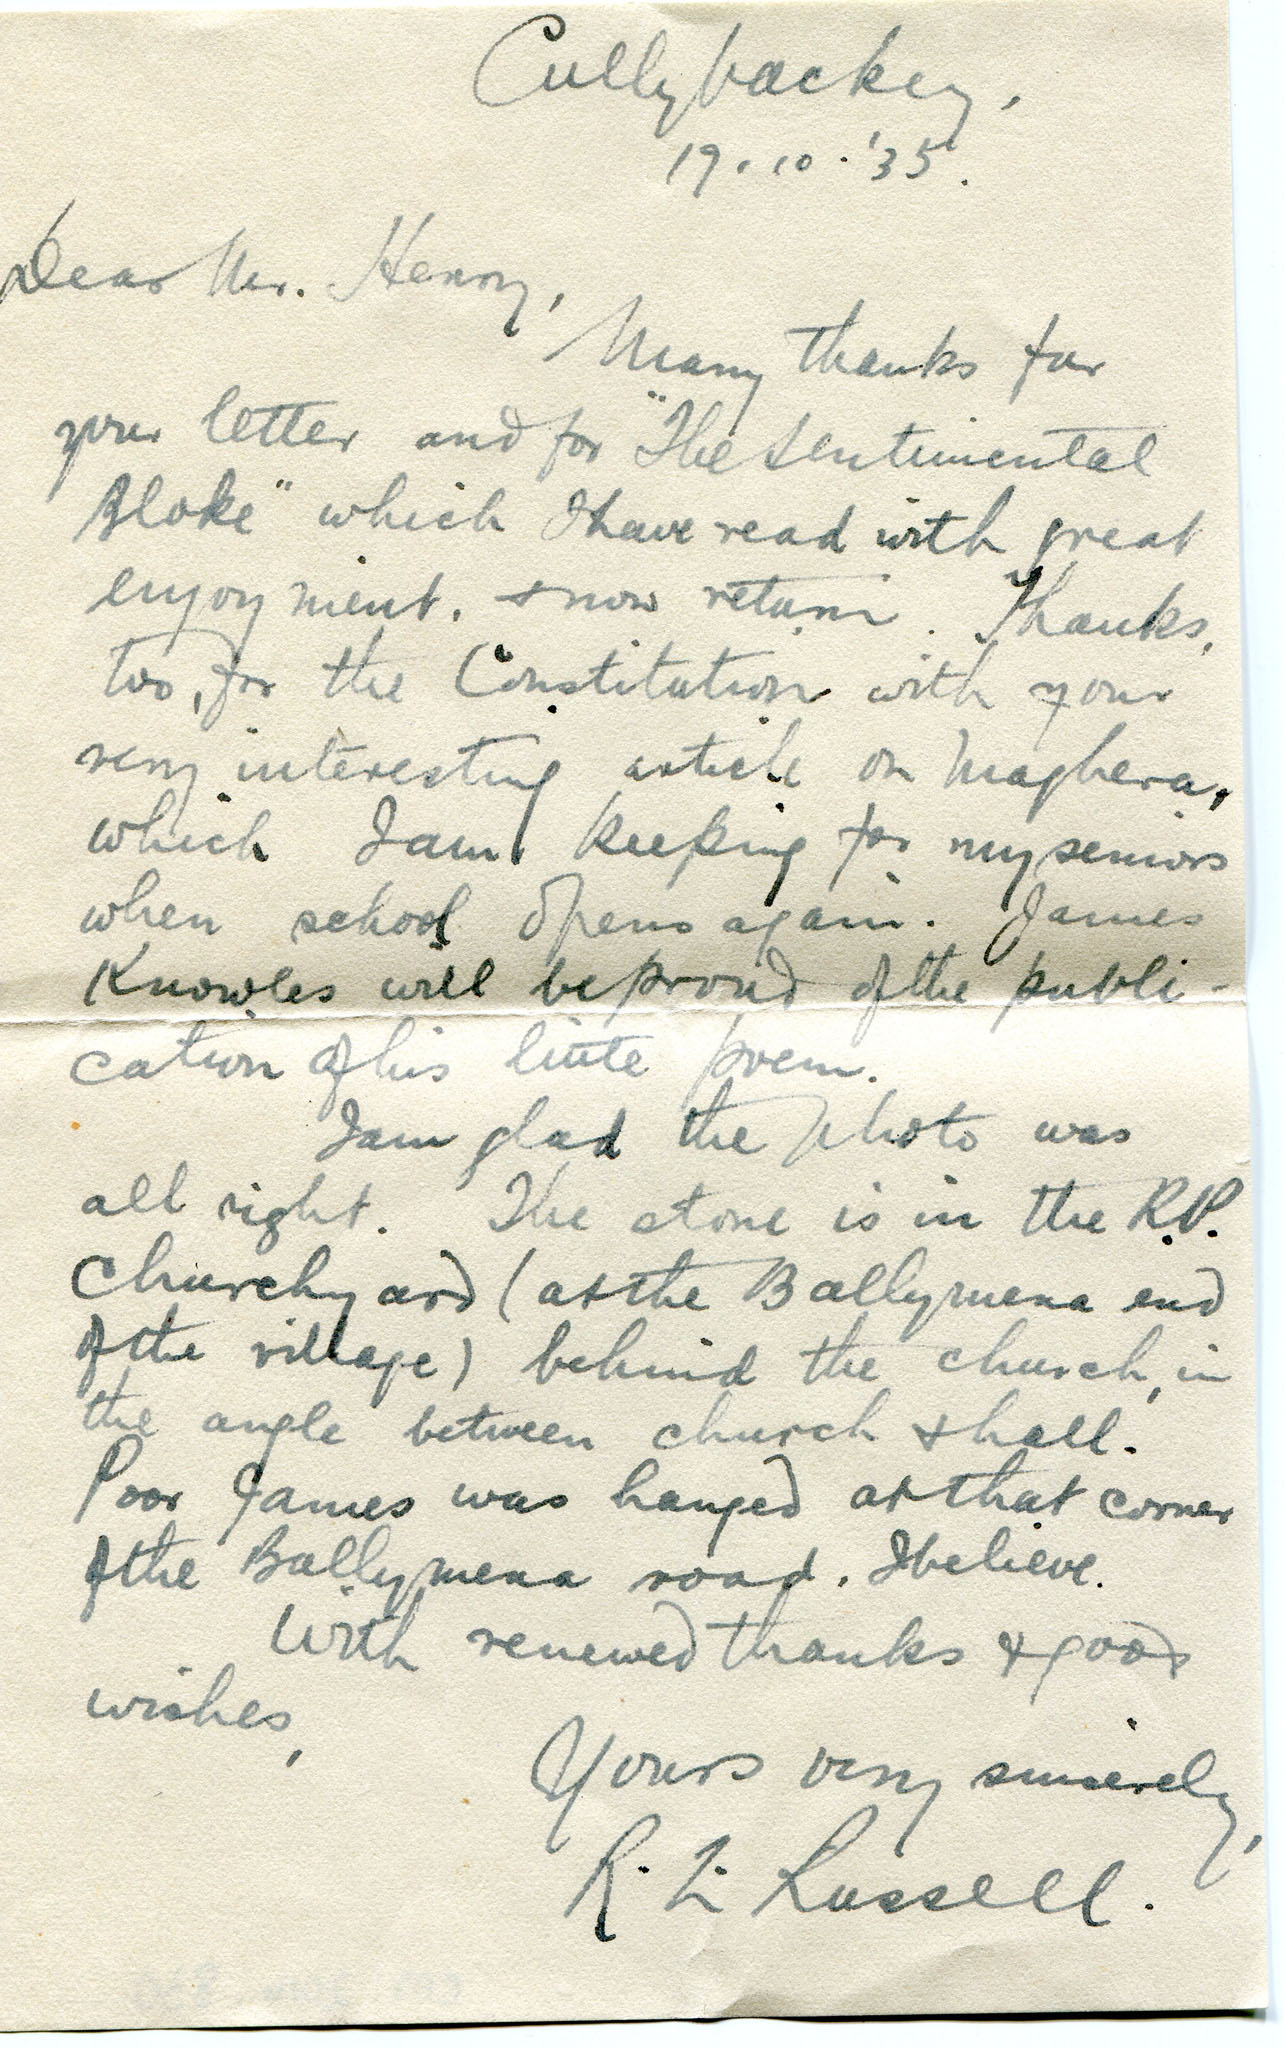 Cullybackey,
19.10.'35.
Dear Mr. Henry,
Many thanks for
your letter and for "The Sentimental
Bloke" which I have read with great
enjoyment, & now return. Thanks,
too, for the Constitution with your
very interesting article on Maghera,
which I am keeping for my seniors
when school opens again. James
Knowles will be proud of the publi-
cation of his little poem.
I am glad the photo was
all right. The stone is in the R.P.
Churchyard (at the Ballymena end
of the village) behind the church, in
the angle between church & hall.
Poor James was hanged at that corner
of the Ballymena road, I believe.
With renewed thanks & good
wishes,
Yours very sincerely,
R. L. Russell.